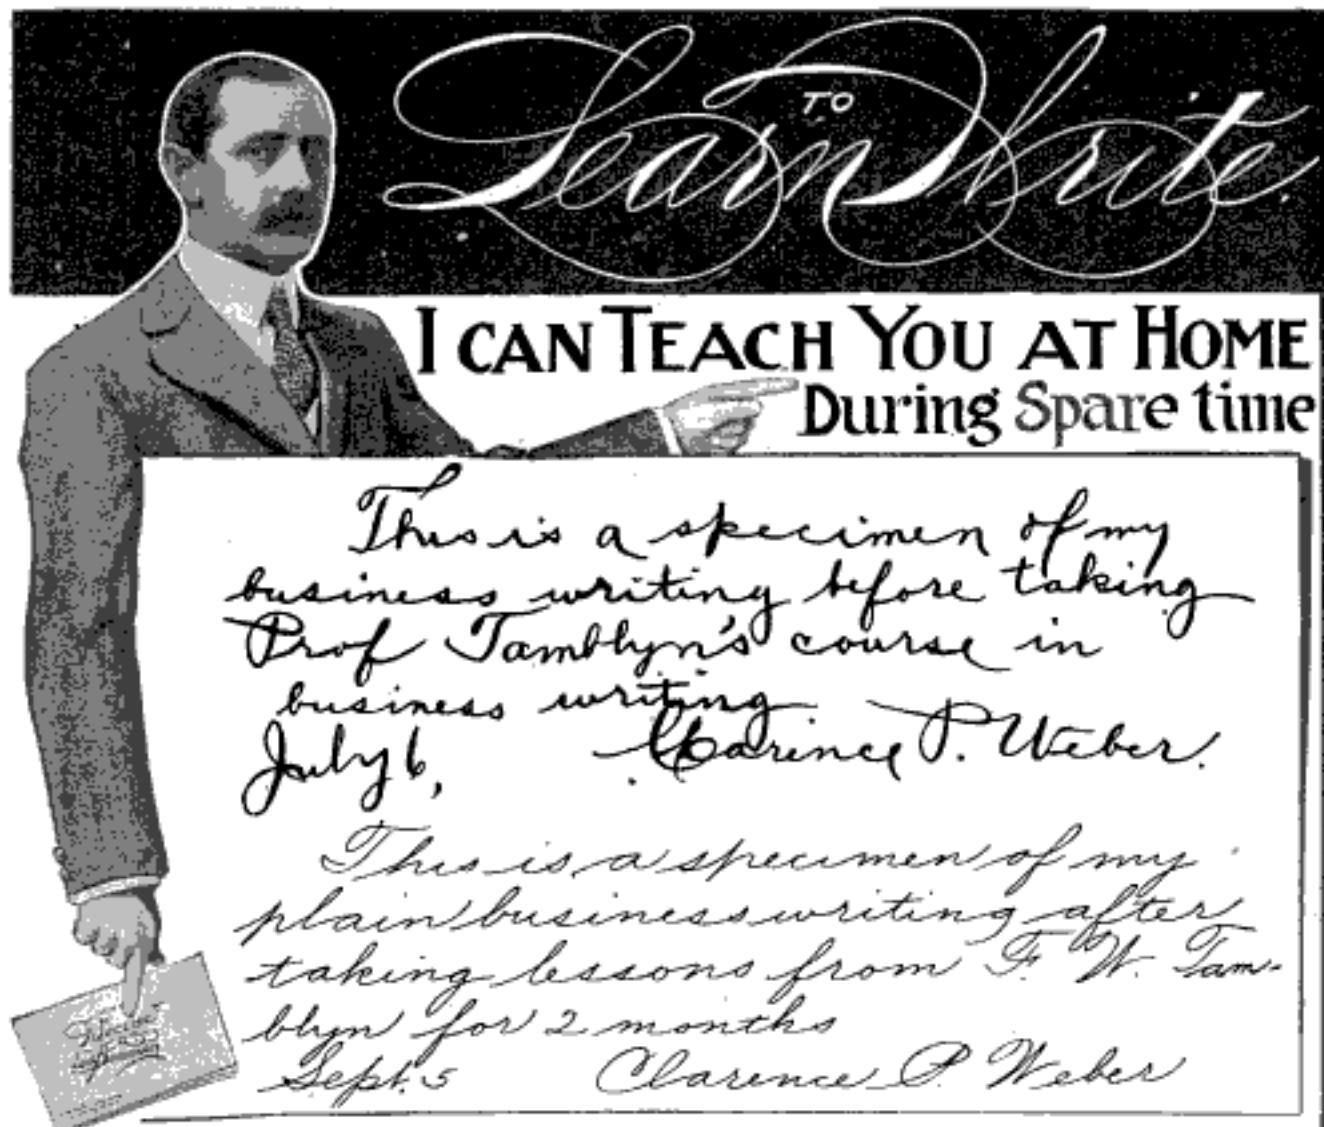 Learn TO Write.
I CAN TEACH YOU AT HOME
During Spare time
This is a specimen of my
business writing before taking
Prof Tamblyn's course in
business writing
July 6, Clarence P. Weber.
This is a specimen of my
plain business writing after
taking lessons from F. W. Tam-
blyn for 2 months
Sept. 5 Clarence P. Weber